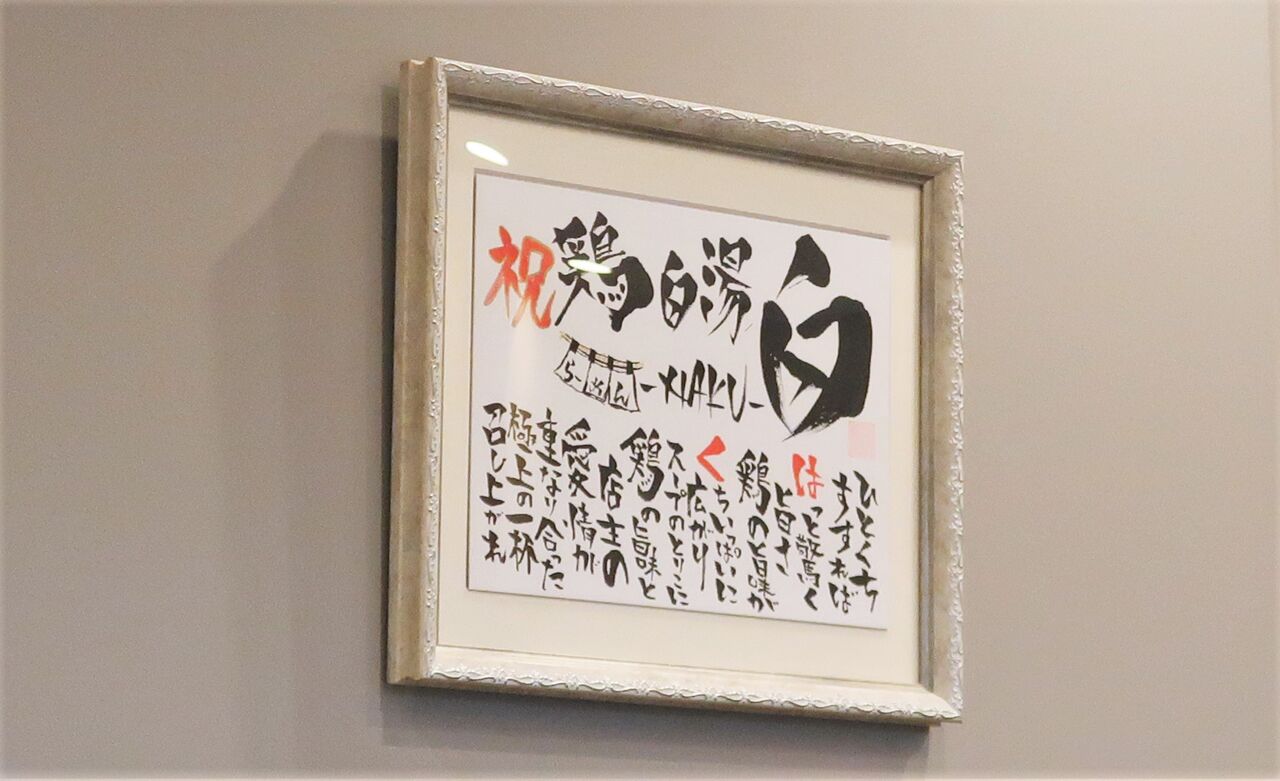 祝
鶏白湯
白
らーめん
-HAKU-
ひとくち
すすれば
はっと驚く
旨さ
鶏の旨味が
くちいっぱいに
広がり
スープのとりこに
鶏の旨味と
店主の
愛情が
重なり合った
極上の一杯
召し上がれ